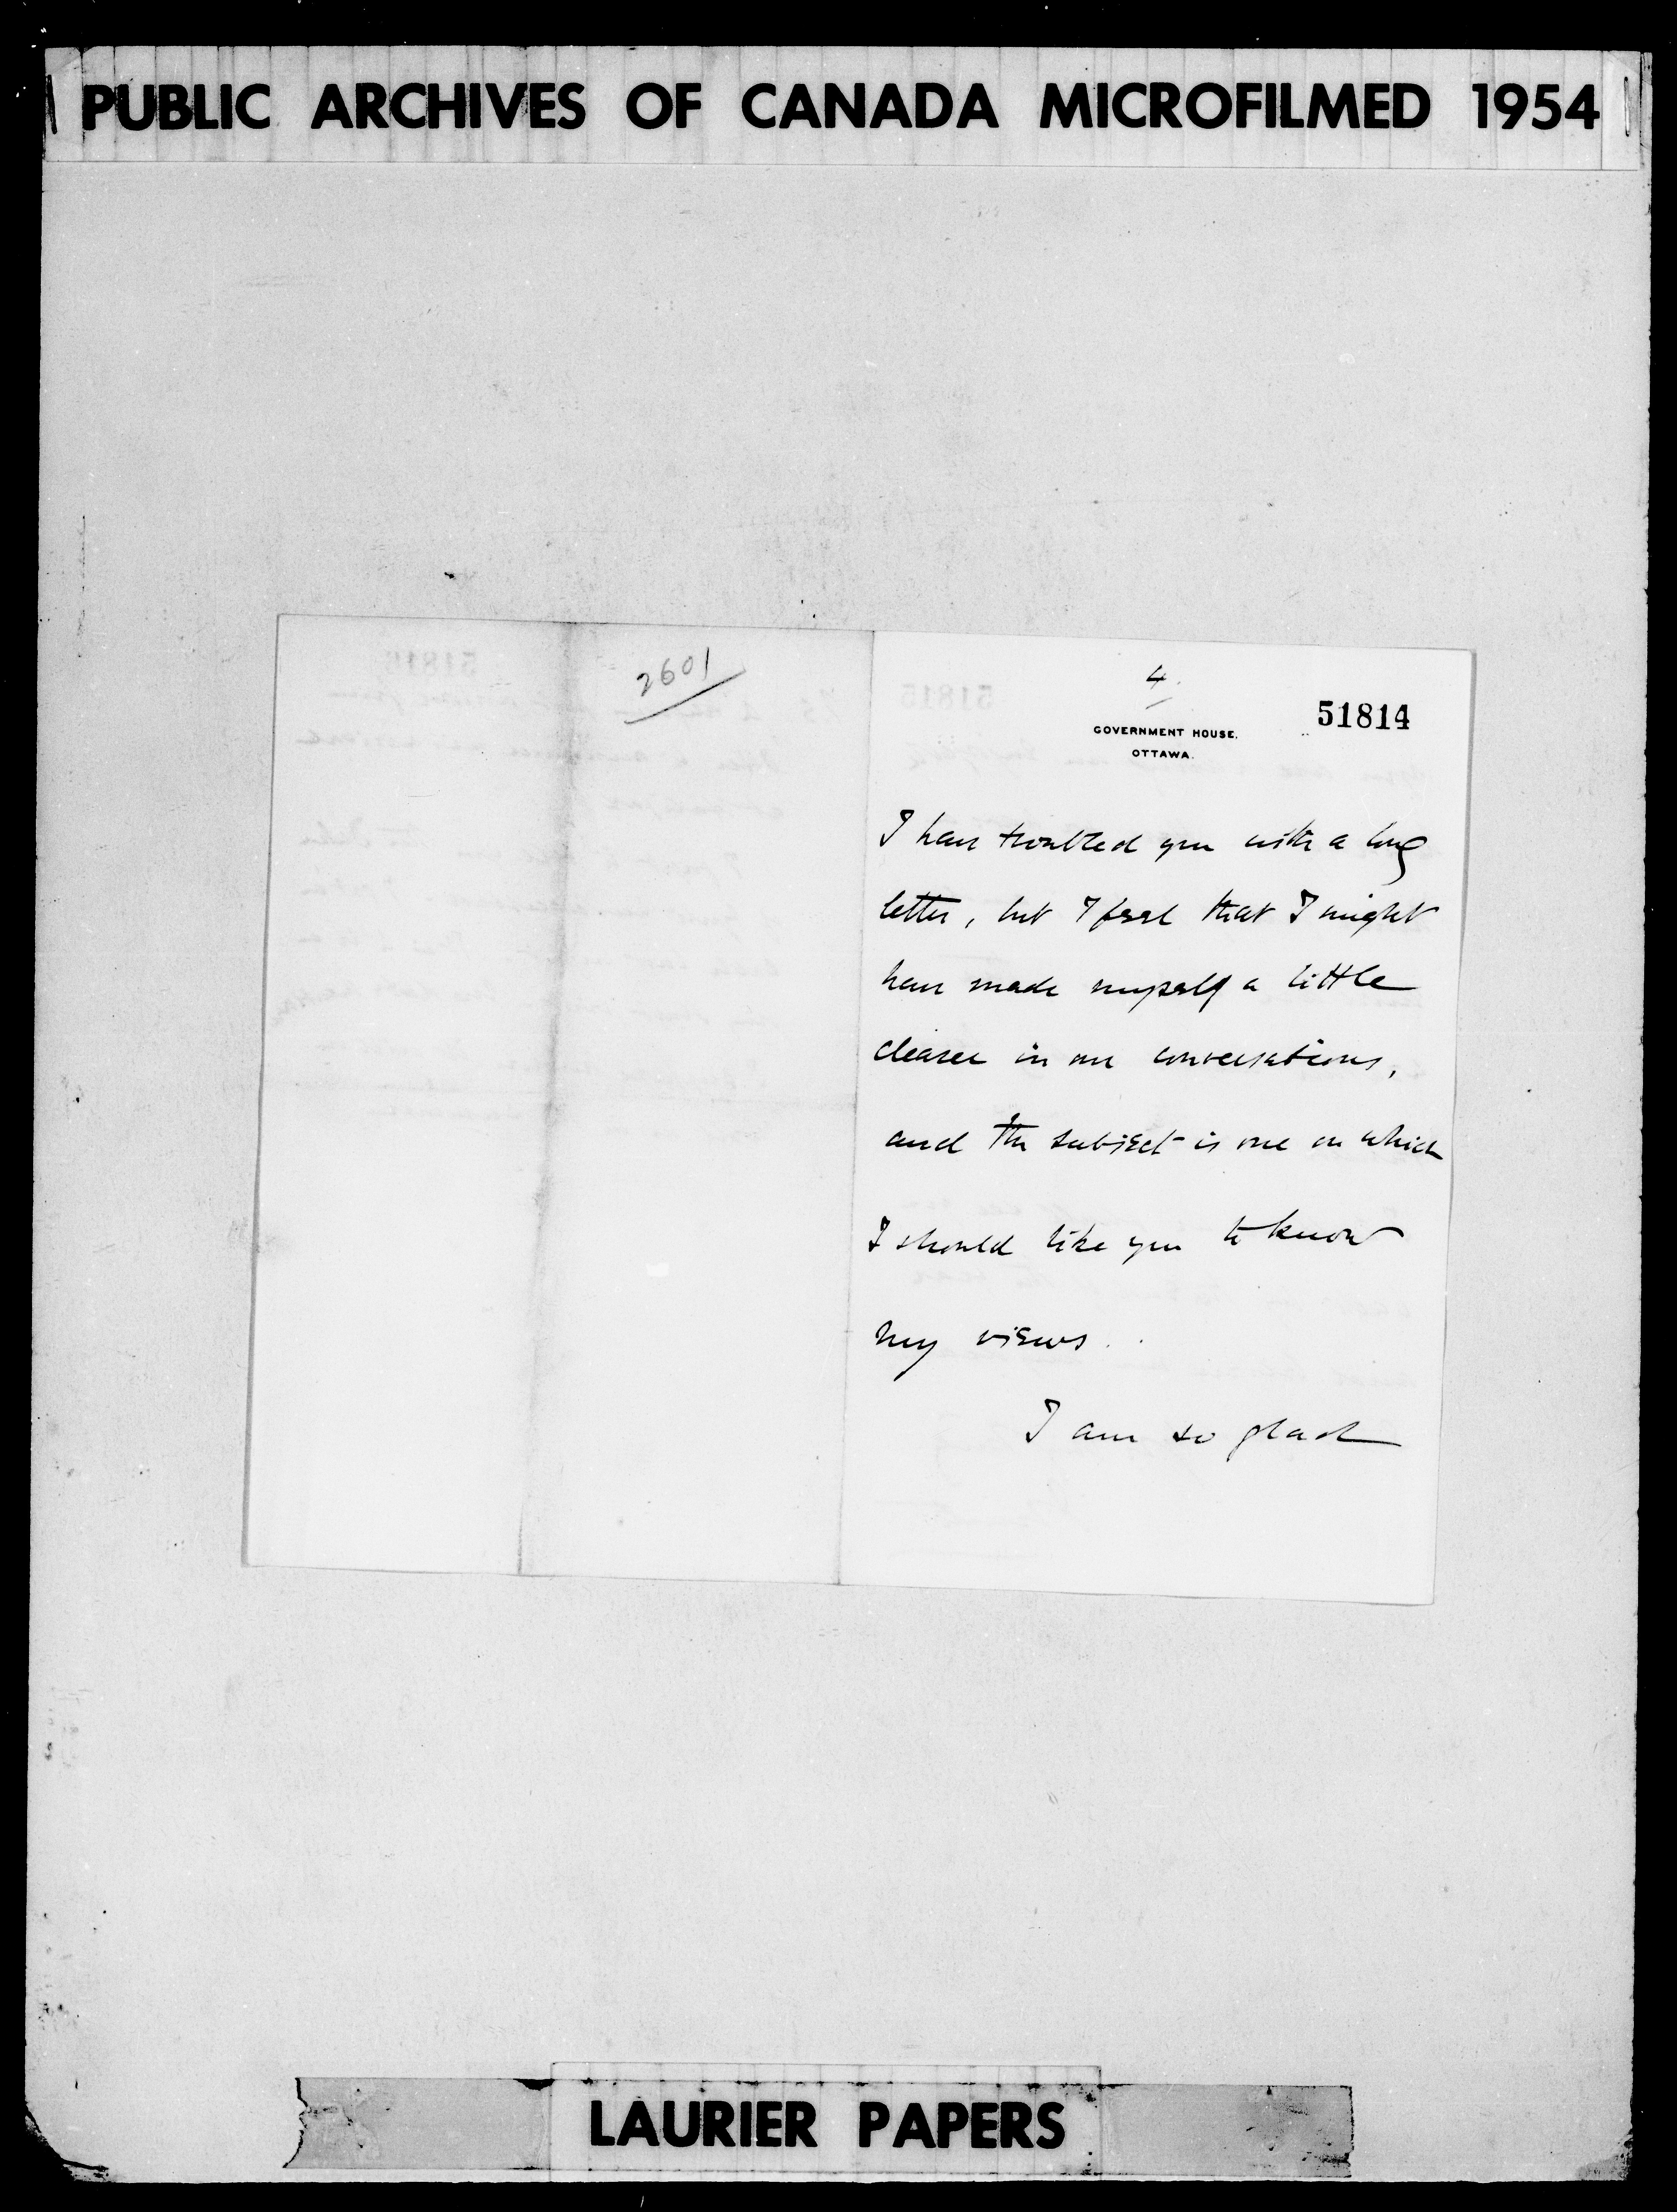 PUBLIC ARCHIVES OF CANADA MICROFILMED 1954
2601
4.
51814
GOVERNMENT HOUSE.
OTTAWA.
I have troubled you with a long
letter, but I feel that I might
have made myself a little
clearer in our conversations,
and the subject is one on which
I should like you to know
my views.
I am so glad
LAURIER PAPERS